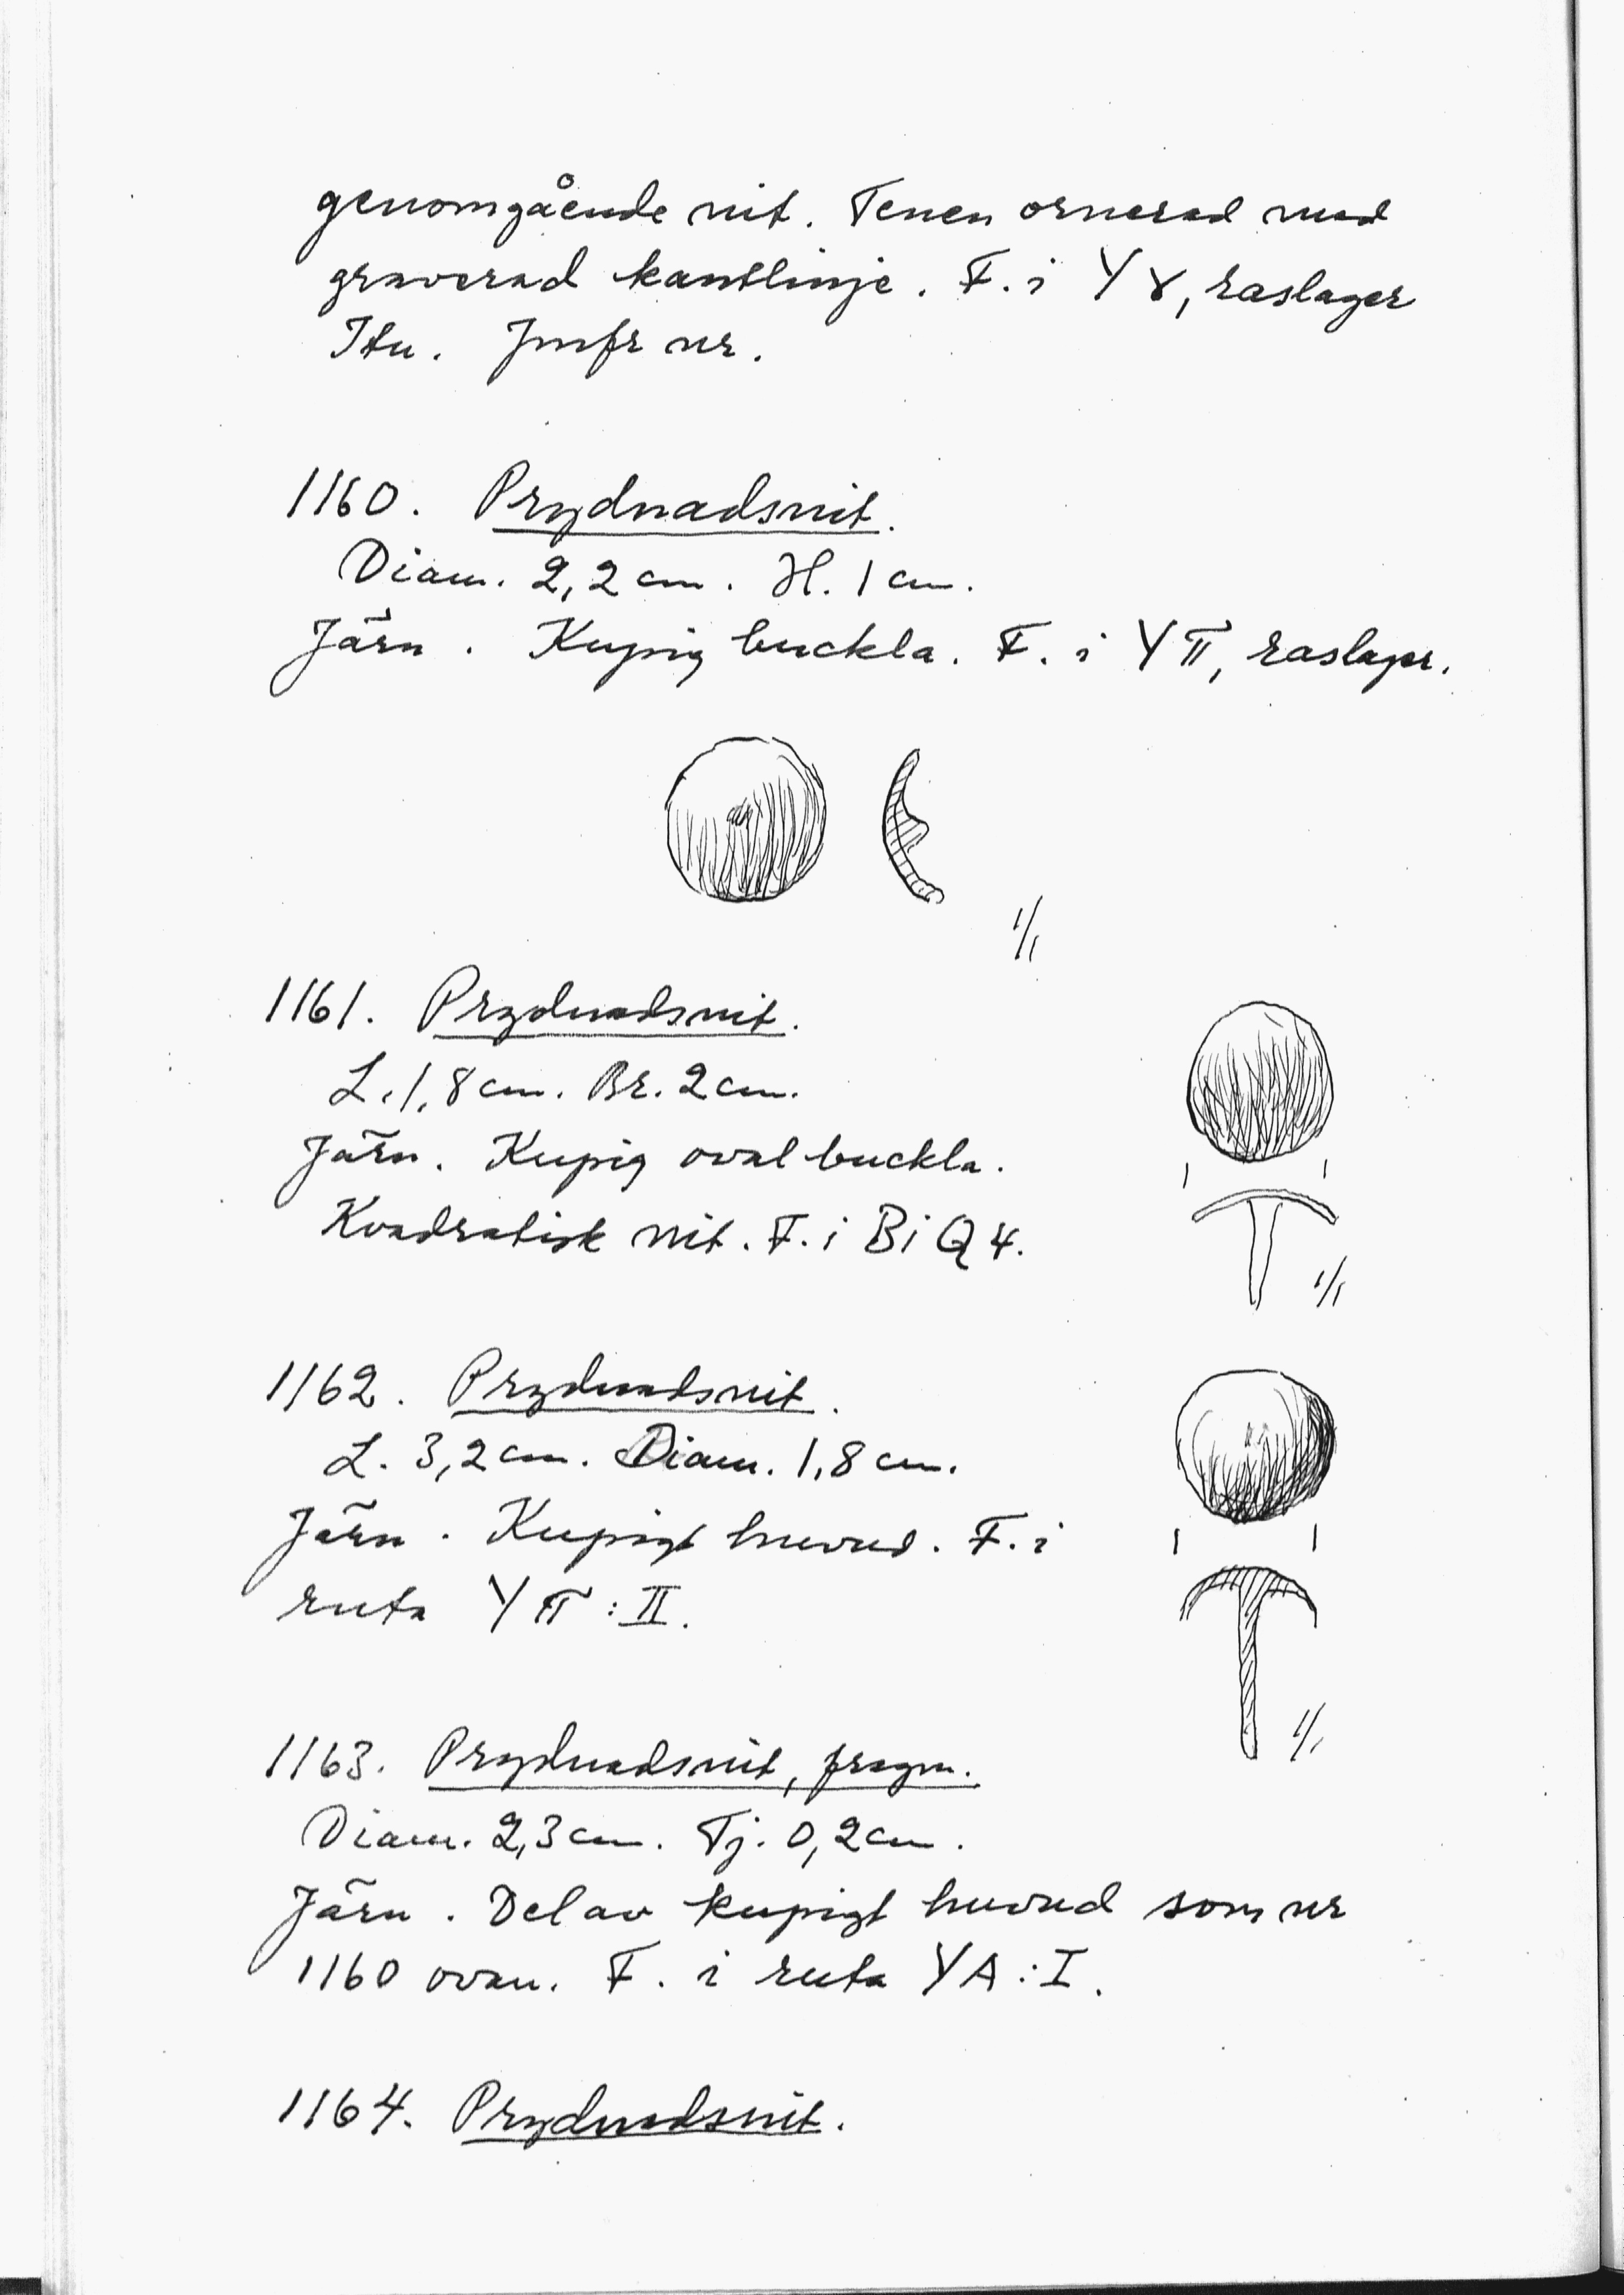 genomgående nit. Tenen ornerad med
graverad kantlinje. F. i YX, raslager
Itu. Jmfr nr.
1160. Prydnadsnit.
Diam. 2,2 cm. H. 1 cm.
Järn. Kupig buckla. F. i YΠ, raslager.
1/1
1161. Prydnadsnit.
L. 1,8 cm. Br. 2 cm.
Järn. Kupig oval buckla.
Kvadratisk nit. F. i BiQ4.
1/1
1162. Prydnadsnit.
L. 3,2 cm. Diam. 1,8 cm.
Järn. Kupigt huvud. F. i
ruta YΠ:II.
1/1
1163. Prydnadsnit, fragm.
Diam. 2,3 cm. Tj. 0,2 cm.
Järn. Del av kupigt huvud som nr
1160 ovan. F. i ruta YA:I.
1164. Prydnadsnit.